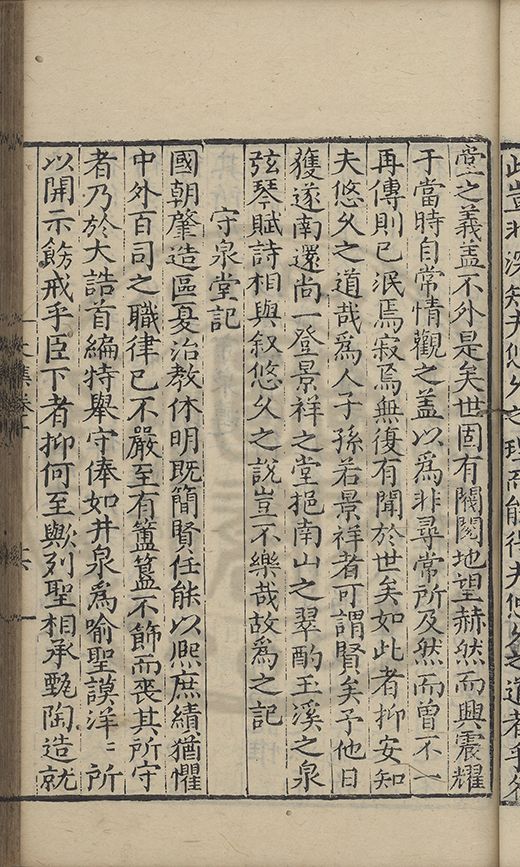 此豈非深知夫悠久之理而能得夫悠久之道者乎
堂之義盖不外是矣世固有閥閱地望赫然而興震耀
于當時自常情觀之盖以爲非尋常所及然而曾不一
再傳則已泯焉寂焉無復有聞於世矣如此者抑安知
夫悠久之道哉爲人子孫若景祥者可謂賢矣予他日
獲遂南還尚一登景祥之堂挹南山之翠酌玉溪之泉
弦琴賦詩相與叙悠久之說豈不樂哉故爲之記
守泉堂記
國朝肇造區夏治教休明既簡賢任能以熈庶績猶懼
中外百司之職律已不嚴至有簠簋不飾而喪其所守
者乃於大誥首編特舉守俸如井泉爲喻聖謨洋〻所
以開示飭戒乎臣下者抑何至歟列聖相承甄陶造就